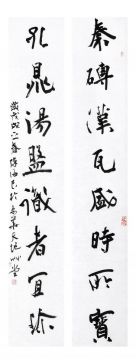 秦磚漢瓦盛時所寶
孔鼎湯盤識者宜珍